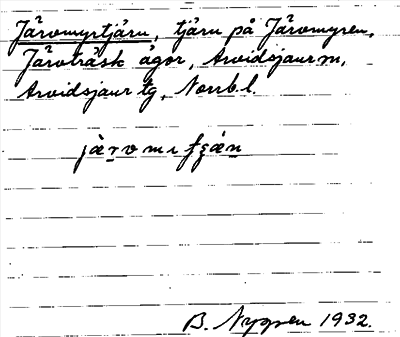 Järvmyrtjärn, tjärn på Järvmyren,
Järvträsk ägor, Arvidsjaur sn,
Arvidsjaur tg, Norrb. l.
B. Nygren 1932.